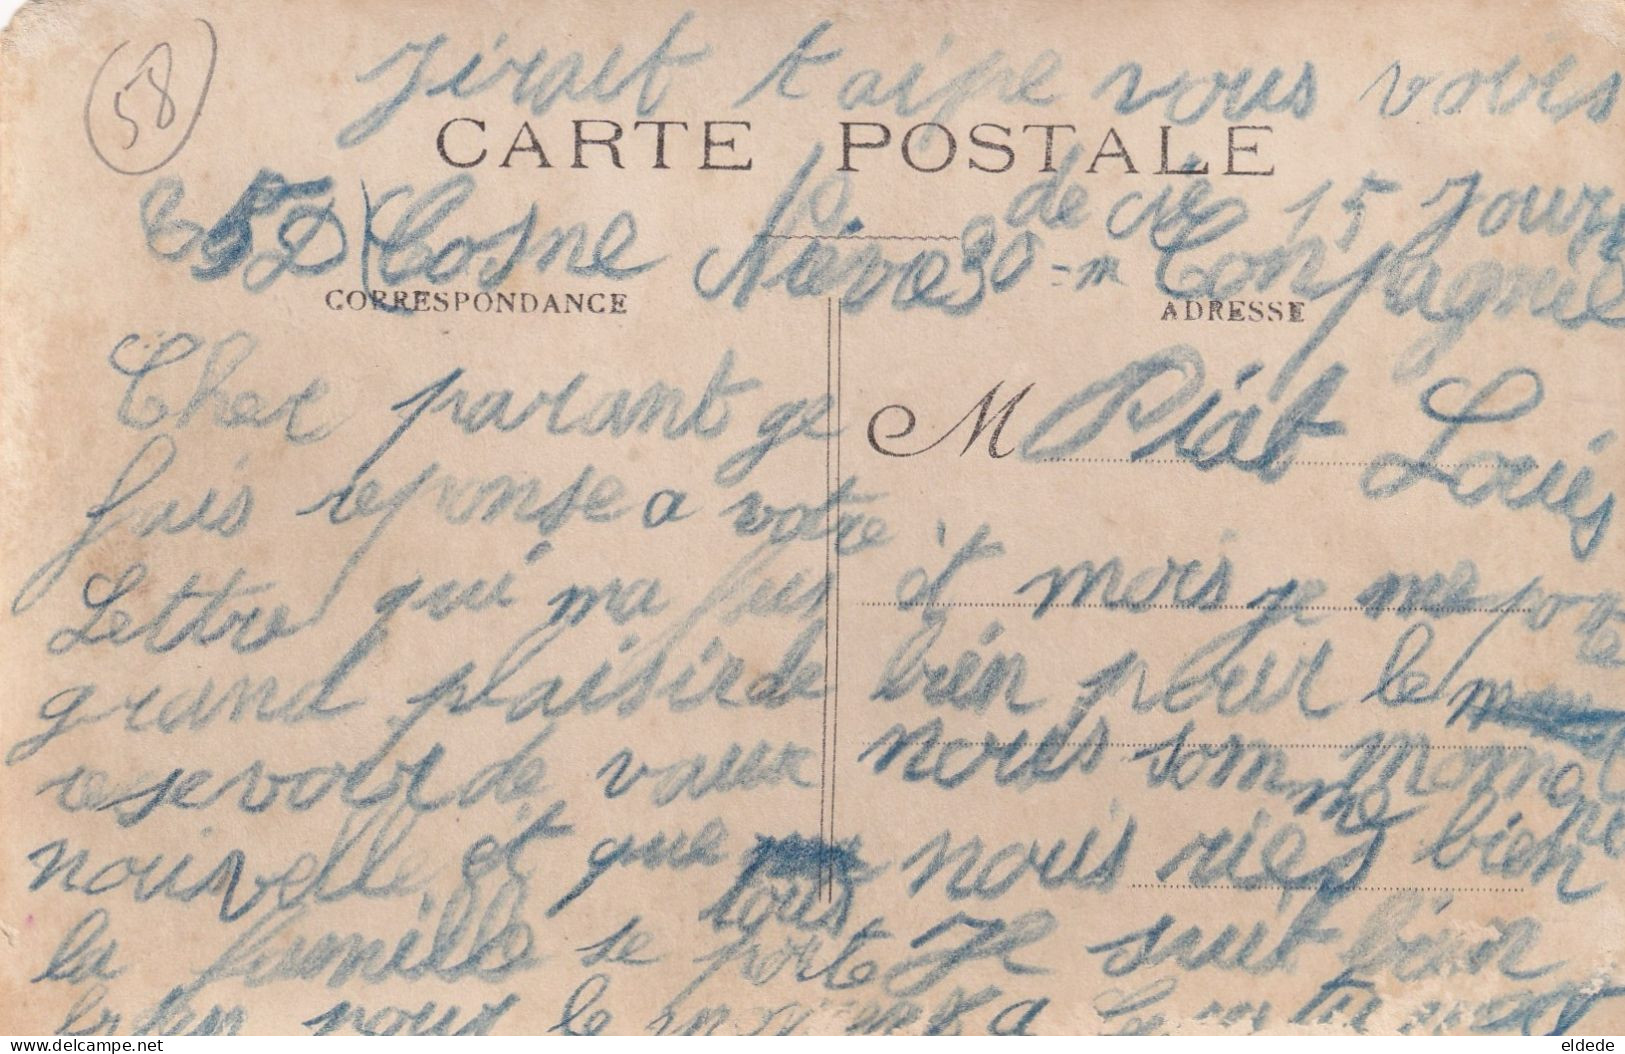 58
Jirait t aipe vous voirs
CARTE POSTALE
de 15 Jours
85 D Cosne Nièvre 30 Conpagniel
CORRESPONDANCE
ADRESSE
Cher parant ge
fais reponse a votre
Lettre qui ma fus
grand plaisir de
resevoir de vaux
nouvelle et que
tous
la famille se porte
bien pour le moment
M Piat Louis
et mois je me porte
bien pour le
nous somme
nous bien
Je suit bien
a
eldede